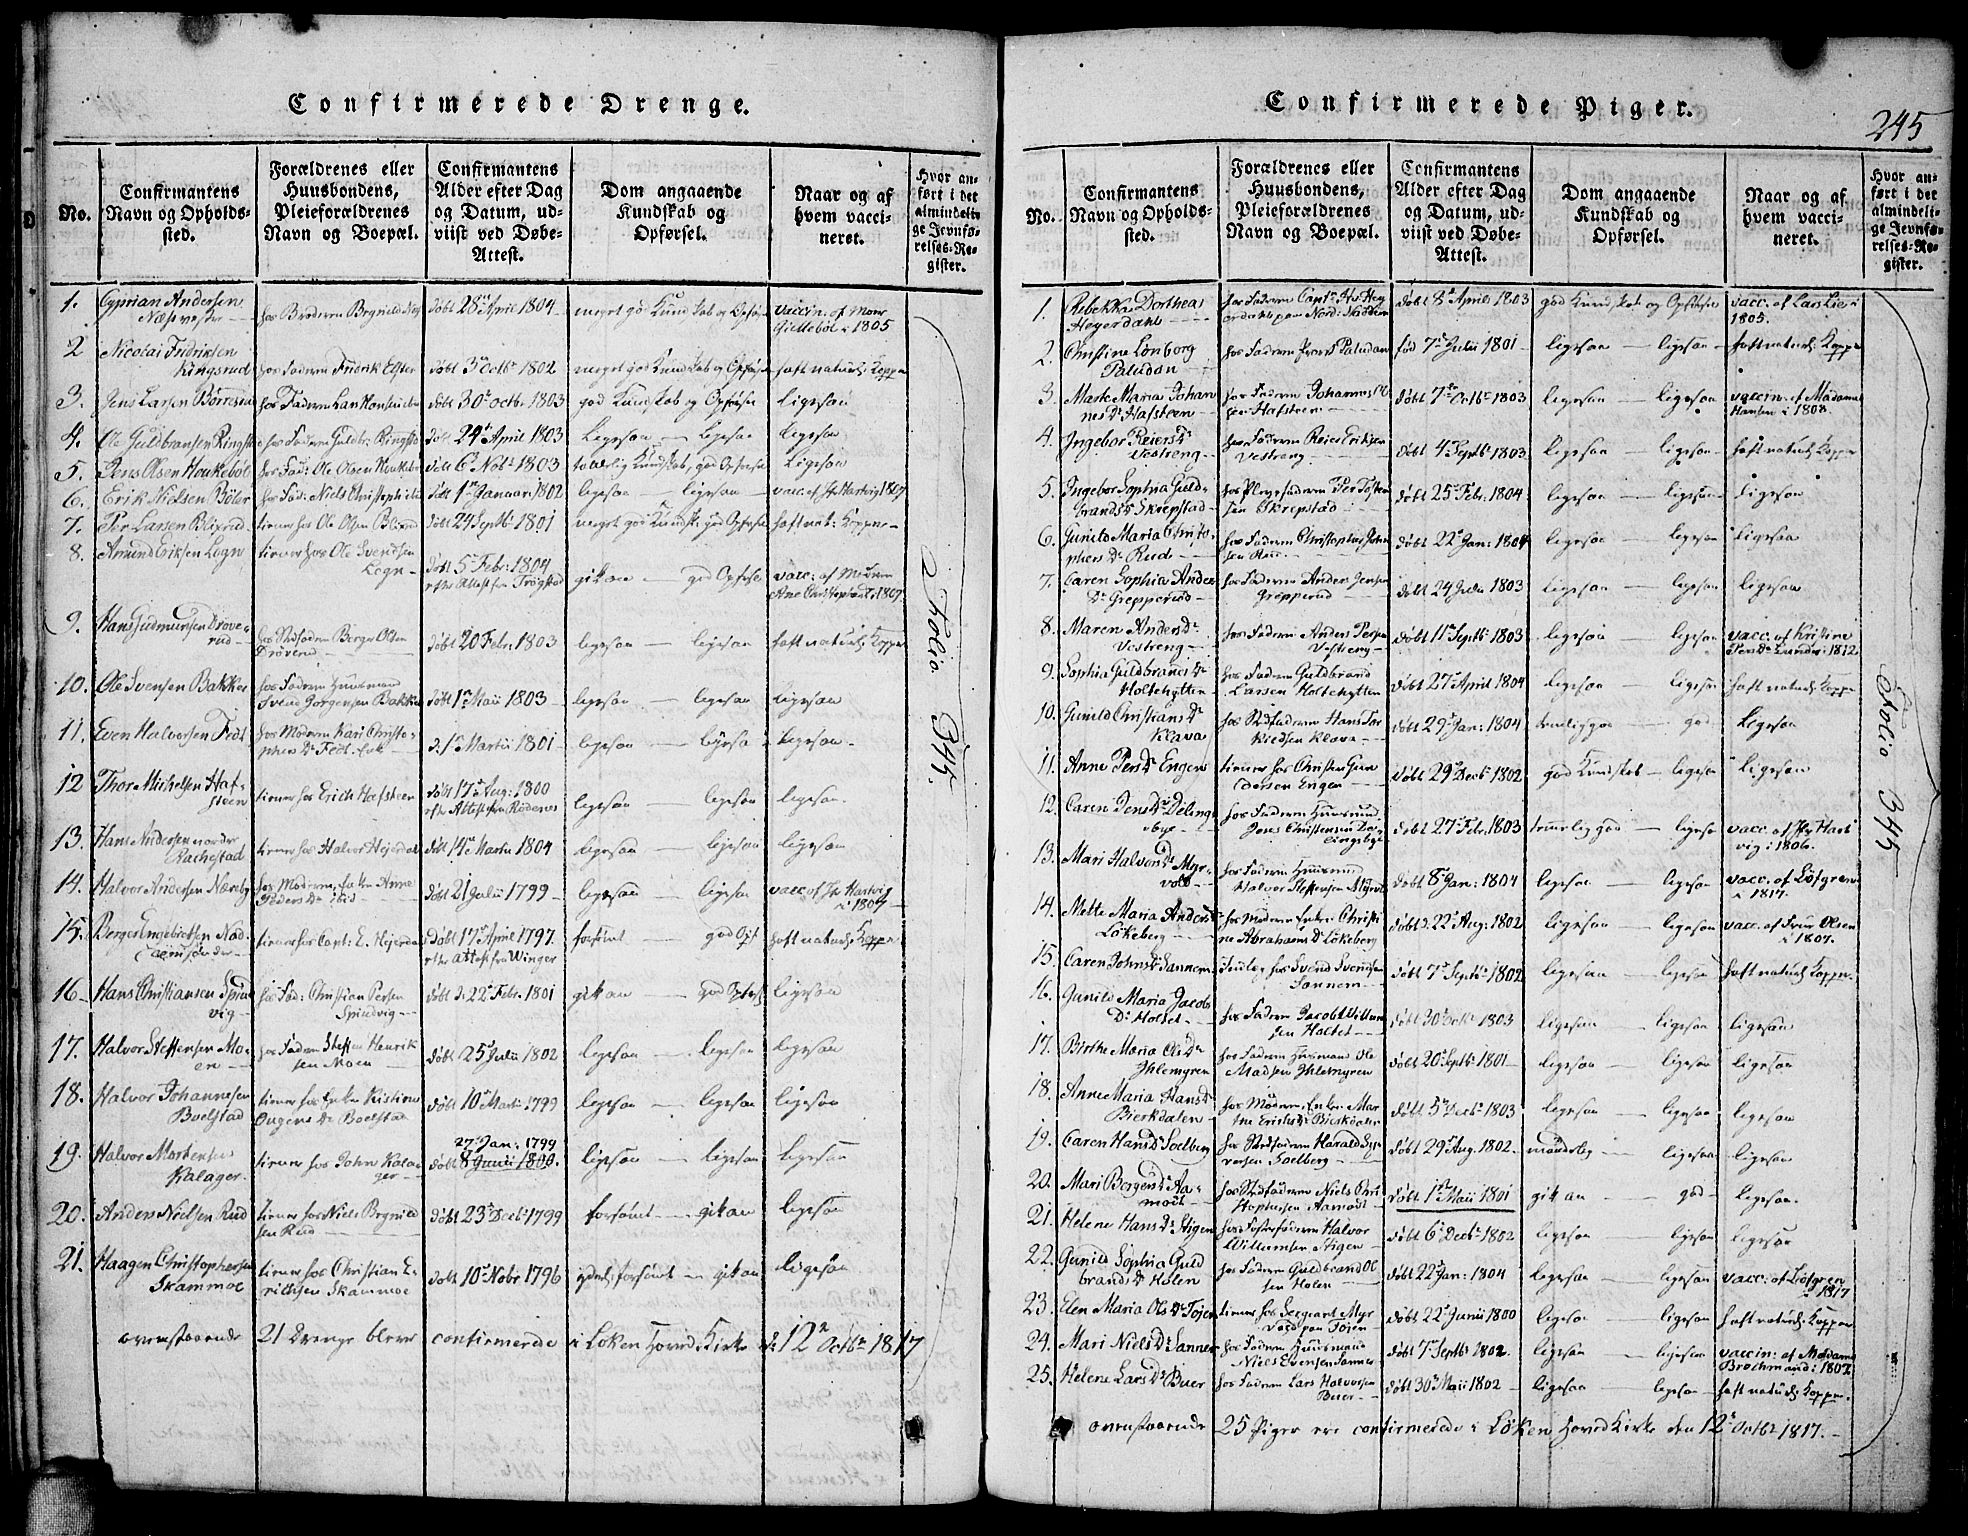 Confirmerede Drenge.
No.
Confirmantens Navn og Opholdssted.
Forældrenes eller Huusbondens, Pleieforældrenes Navn og Boepæl.
Confirmantens Alder efter Dag og Datum, udviist ved Døbe-Attest.
Dom angaaende Kundskab og Opførsel.
Naar og af hvem vaccineret.
Hvor anført i det almindelige Jevnførelses-Register.
1. Cyprian Andersen døbt 28 April 1804 meget god Kundskab og Opførsel vaccin. af 1805
2 Nicolai Fridriksen Kingsrud hos Faderen Fridrik døbt 3 Octbr 1802 meget god Kundskab og Opførsel haft naturl: Kopper
3. Jens Larsen hos Faderen Lars døbt 30 octb. 1803 god Kundskab og Opførsel ligesaa
4. Ole Guldbransen hos Faderen Guldbr: døbt 24 April 1803 ligesaa ligesaa ligesaa
5. Jens Olsen hos Fad: Ole Olsen døbt 6 Nobr 1803 god Opførsel Ligesaa
6. Erik Nielsen Böler hos Fad: Niels døbt 1 Januari 1802 ligesaa ligesaa vacc. af Hr Hartvig 1807
7. Per Larsen Blixrud tiener hos Ole Olsen Blixrud døbt 24 Septbr 1801 meget god Kundsk: god Opførsel haft nat: Kopper
8. Amund Eriksen tiener hos Ole Svendsen døbt 5 Febr: 1804 efter Attest fra Trögstad gik an god Opførsel vacc: af Madam 1807.
9. Hans Gudmunsen Dröverud hos Stedfaderen Berger Olsen Dröverud døbt 20 Febr 1803 ligesaa ligesaa haft naturl: Kopper
10. Ole Svensen Bakke hos Faderen Huusmand Svend Jörgensen Bakke døbt 1 Maii 1803 ligesaa ligesaa ligesaa
11. Even Halvorsen hos Moderen Kari d. 1 Martii 1801 ligesaa ligesaa
12 Thor Michelsen Hafsteen tiener hos Erich Hafsteen døbt 17 Aug: 1800 efter Attest fra Rödenes ligesaa ligesaa ligesaa
13. Hans Andersen tiener hos Halvor døbt 14 Martii 1804 ligesaa ligesaa ligesaa
14. Halvor Andersen hos Moderen, Enken Anne Peders Dr ibid døbt 21 Julii 1799 ligesaa ligesaa vacc. af Hr Hartvig i 1807
15. Berger Engebretsen tiener hos Capt: døbt 17 April 1797. efter Attest fra Winger forsömt god Opf. haft naturl: Kopper
16 Hans Christiansen Spindvig hos Fad: Christian Persen Spindvig døbt d. 22 Febr. 1801 gik an god Opførs. ligesaa
17. Halvor Steffensen Moen hos Faderen Steffen Henriksen Moen døbt 25 Julii 1802 ligesaa ligesaa ligesaa
18. Halvor Johannesen Boelstad tiener hos Enken Kistine Boelstad døbt 10 Martii 1799 ligesaa ligesaa ligesaa
19. Halvor Mortensen Kalager tiener hos John Kalager 27 Jan: 1799 døbt 8 Junii 1800. ligesaa ligesaa ligesaa
20. Anders Nielsen Rud tiener hos Niels døbt 23 Decbr 1799 forsömt gik an ligesaa
21. Haagen Christophersen Skammoe tiener hos Christian Erichsen Skammoe døbt 10 Nobr 1796 forsömt gik an ligesaa
ovenstaaende 21 Drenge bleve confirmerede i Löken Hoved Kirke d: 12 Octbr 1817
Folio 345.
Confirmerede Piger.
245
No.
Confirmantens Navn og Opholdssted.
Forældrenes eller Huusbondens, Pleieforældrenes Navn og Boepæl.
Confirmantens Alder efter Dag og Datum, udviist ved Døbe-Attest.
Dom angaaende Kundskab og Opførsel.
Naar og af hvem vaccineret.
Hvor anført i det almindelige Jevnførelses-Register.
1. Rebekka Dorthea Heyerdahl hos Faderen Capt. døbt 8 April 1803 god Kundskab og Opførsel vacc. af Lars 1805.
2. Christine Lönborg Paludan hos Faderen Paludan fød 7 Julii 1801 ligesaa ligesaa haft naturl: Kopper
3. Maria Johannes Dr Hafsteen hos Faderen Johannes Hafsteen døbt 7 Octbr 1803 ligesaa ligesaa vaccin. af Madame Hansen i 1808.
4. Ingebor Reiers Dr Vestreng hos Faderen Reier Eriksen Vestreng døbt 4 Septbr 1803 ligesaa ligesaa haft naturl: Kopper
5. Ingebor Sophia Guldbrands Dr Skrepstad hos Pleyefaderen Per Skrepstad døbt 25 Febr: 1804 ligesaa ligesaa ligesaa
6. Gunild Maria Christophers Dr Rud hos Faderen Christopher døbt 22 Jan: 1804 ligesaa ligesaa ligesaa
7. Caren Sophia Anders Dr Grepperud hos Faderen Anders Jensen Grepperud døbt 24 Julii 1803 ligesaa ligesaa ligesaa
8. Maren Anders Dr Vestreng hos Faderen Anders Persen Vestreng døbt 11 Septbr 1803 ligesaa ligesaa vacc. af Kristine i 1812
9. Sophia Guldbrands Dr Holtehytten hos Faderen Guldbrand Larsen Holtehytten døbt 27 April 1804 ligesaa ligesaa haft naturl: Kopper
10. Gunild Christians Dr Klava hos Stedfaderen Hans Klava døbt 29 Jan: 1804 temelig god god ligesaa
11. Anne Pers Dr Engen tiener hos Christen Gundersen Engen døbt 29 Decbr 1802 god Kundskab ligesaa ligesaa
12. Caren Jens Dr hos Faderen Huusmand Jens Christensen døbt 27 Febr: 1803 temmelig god ligesaa vacc. af Hr Hartvig i 1806.
13. Mari Halvors Dr Myrvold hos Faderen Huusmand Halvor Steffensen døbt 8 Jan: 1804 ligesaa ligesaa vacc. af Löfgren i 1817.
14. Mette Maria Anders Dr Lökeberg hos Moderen, Enke: Christine Abrahams Dr Lökeberg døbt d. 22 Aug: 1802 ligesaa ligesaa vacc. af Olsen i 1807.
15. Caren Johns Dr Sannem hos Svend Svendsen Sannem døbt 7 Septbr 1802 ligesaa ligesaa haft naturl: Kopper
16. Gunild Maria Jacobs Dr Holtet hos Faderen Jacob Holtet døbt 30 Octbr 1803 ligesaa ligesaa ligesaa
17. Birthe Maria Ols Dr Ihlemyren hos Faderen Huusmand Ole Madsen Ihlemyren døbt 20 Septbr 1801 ligesaa ligesaa ligesaa
18. Anne Maria Hans Dr Bierkdalen hos Moderen, Enke: Marthe Erichs Dr Bierkdalen døbt 5 Decbr 1803 ligesaa ligesaa ligesaa
19. Caren Hans Dr Soelberg hos Stedfaderen Harald Soelberg døbt 29 Aug. 1802. ligesaa ligesaa
20. Mari Bergers Dr Aamodt hos Stedfaderen Niels Christophersen Aamodt døbt 1 Maii 1801 gik an god ligesaa.
21. Helene Hans Dr Stigen hos Fosterfaderen Halvor Willumsen Stigen døbt 6 Decbr 1802 ligesaa ligesaa ligesaa
22. Gunild Sophia Guldbrands Dr Holen hos Faderen Guldbrand Olsen Holen døbt 22 Jan: 1804 ligesaa ligesaa vacc. af Löfgren i 1817
23. Elen Maria Ols Dr Töien tiener hos Sergiant Myrvold paa Töien døbt 22 Junii 1800 ligesaa ligesaa haft naturl: Kopper
24. Mari Niels Dr Sannes hos Faderen Huusmand Niels Evensen Sannes døbt 7 Septbr 1802. ligesaa ligesaa vaccin: af Madame Brochmand i 1802
25. Helene Lars Dr Buer hos Faderen Lars Halvorsen Buer døbt 30 Maii 1802 ligesaa ligesaa haft naturl: Kopper.
ovenstaaende 25 Piger ere confirmerede i Löken Hoved Kirke den 12 Octbr 1817.
Folio 345